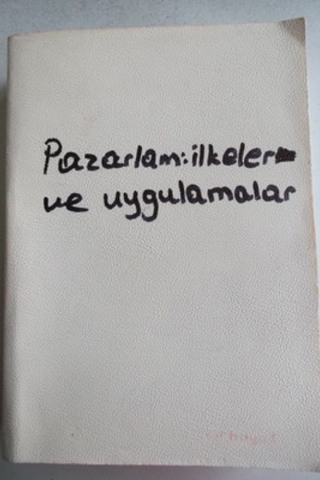 Pazarlam:ilkeler
ve uygulamalar